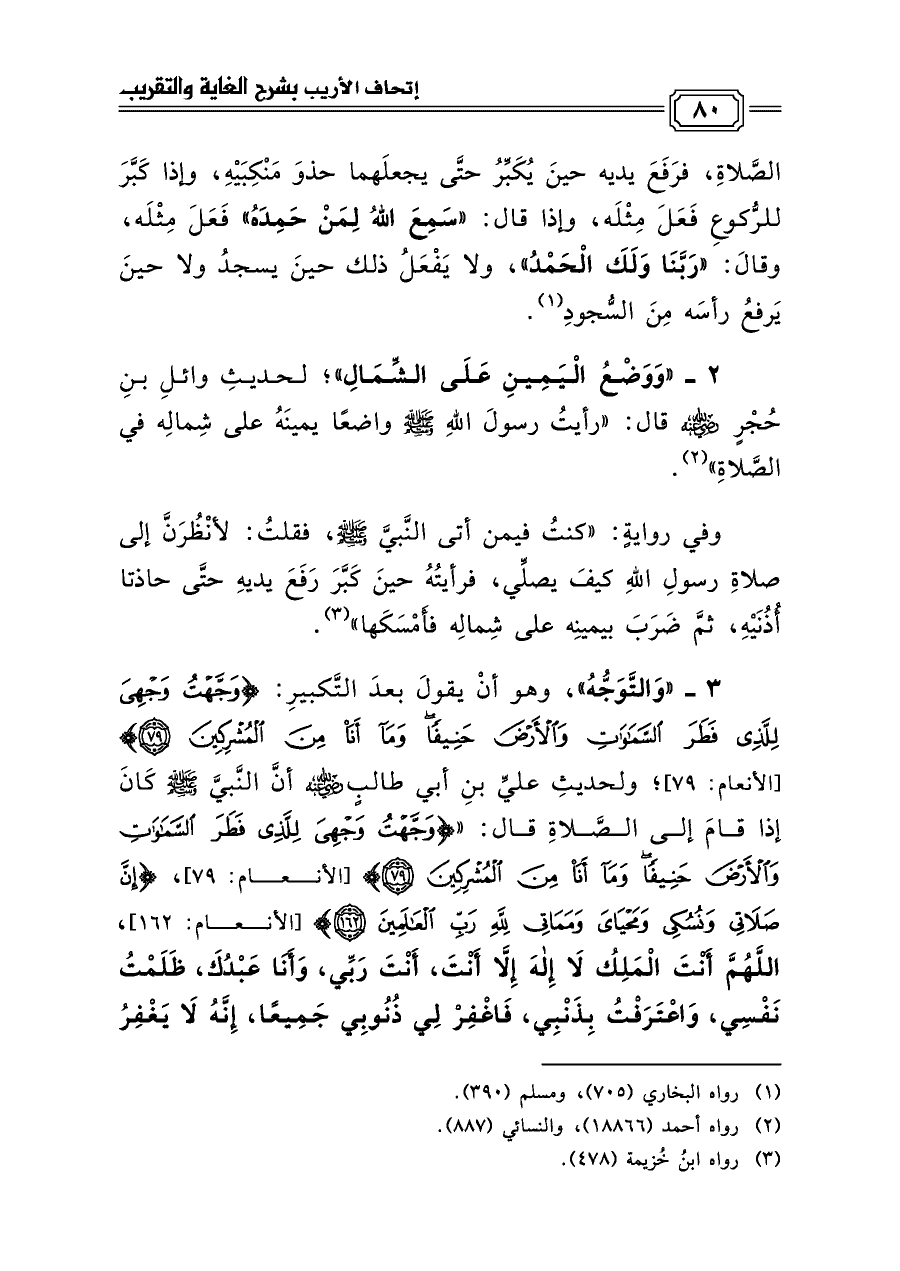 إتحاف الأريب بشرح الغاية والتقريب
٨٠
الصَّلاةِ، فرَفَعَ يديه حينَ يُكَبِّرُ حتَّى يجعلَهما حذوَ مَنْكِبَيْهِ، وإذا كَبَّرَ
للرُّكوعِ فَعَلَ مِثْلَه، وإذا قال: «سَمِعَ اللهُ لِمَنْ حَمِدَهُ» فَعَلَ مِثْلَه،
وقالَ: «رَبَّنَا وَلَكَ الْحَمْدُ»، ولا يَفْعَلُ ذلك حينَ يسجدُ ولا حينَ
يَرفعُ رأسَه مِنَ السُّجودِ(١).
٢ ـ «وَوَضْعُ الْيَمِينِ عَلَى الشِّمَالِ»؛ لحديثِ وائلِ بنِ
حُجْرٍ رضي الله عنه قال: «رأيتُ رسولَ اللهِ ﷺ واضعًا يمينَهُ على شِمالِه في
الصَّلاةِ»(٢).
وفي روايةٍ: «كنتُ فيمن أتى النَّبيَّ ﷺ، فقلتُ: لأنْظُرَنَّ إلى
صلاةِ رسولِ اللهِ كيفَ يصلِّي، فرأيتُهُ حينَ كَبَّرَ رَفَعَ يديهِ حتَّى حاذتا
أُذُنَيْهِ، ثمَّ ضَرَبَ بيمينِه على شِمالِه فأَمْسَكَها»(٣).
٣ ـ «وَالتَّوَجُّهُ»، وهو أنْ يقولَ بعدَ التَّكبيرِ: ﴿وَجَّهْتُ وَجْهِىَ
لِلَّذِى فَطَرَ ٱلسَّمَٰوَٰتِ وَٱلْأَرْضَ حَنِيفًاۖ وَمَآ أَنَا۠ مِنَ ٱلْمُشْرِكِينَ ٧٩﴾
[الأنعام: ٧٩]؛ ولحديثِ عليِّ بنِ أبي طالبٍ رضي الله عنه أنَّ النَّبيَّ ﷺ كَانَ
إذا قامَ إلى الصَّلاةِ قال: «﴿وَجَّهْتُ وَجْهِىَ لِلَّذِى فَطَرَ ٱلسَّمَٰوَٰتِ
وَٱلْأَرْضَ حَنِيفًاۖ وَمَآ أَنَا۠ مِنَ ٱلْمُشْرِكِينَ ٧٩﴾ [الأنعام: ٧٩]، ﴿إِنَّ
صَلَاتِى وَنُسُكِى وَمَحْيَاىَ وَمَمَاتِى لِلَّهِ رَبِّ ٱلْعَٰلَمِينَ ١٦٢﴾ [الأنعام: ١٦٢]،
اللَّهُمَّ أَنْتَ الْمَلِكُ لَا إِلٰهَ إِلَّا أَنْتَ، أَنْتَ رَبِّي، وَأَنَا عَبْدُكَ، ظَلَمْتُ
نَفْسِي، وَاعْتَرَفْتُ بِذَنْبِي، فَاغْفِرْ لِي ذُنُوبِي جَمِيعًا، إِنَّهُ لَا يَغْفِرُ
(١) رواه البخاري (٧٠٥)، ومسلم (٣٩٠).
(٢) رواه أحمد (١٨٨٦٦)، والنسائي (٨٨٧).
(٣) رواه ابنُ خُزيمة (٤٧٨).